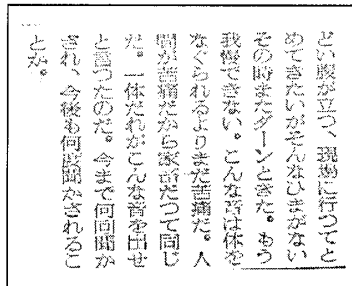 どい腹が立つ、現場に行つてと
めてきたいがそんなひまがない
その時またダーンときた。もう
我慢できない。こんな音は体を
なぐられるよりまだ苦痛だ。人
間が苦痛だから家畜だつて同じ
だ。一体だれがこんな音を出せ
と言つたのだ。今まで何回聞か
され、今後も何度聞かされるこ
とか。